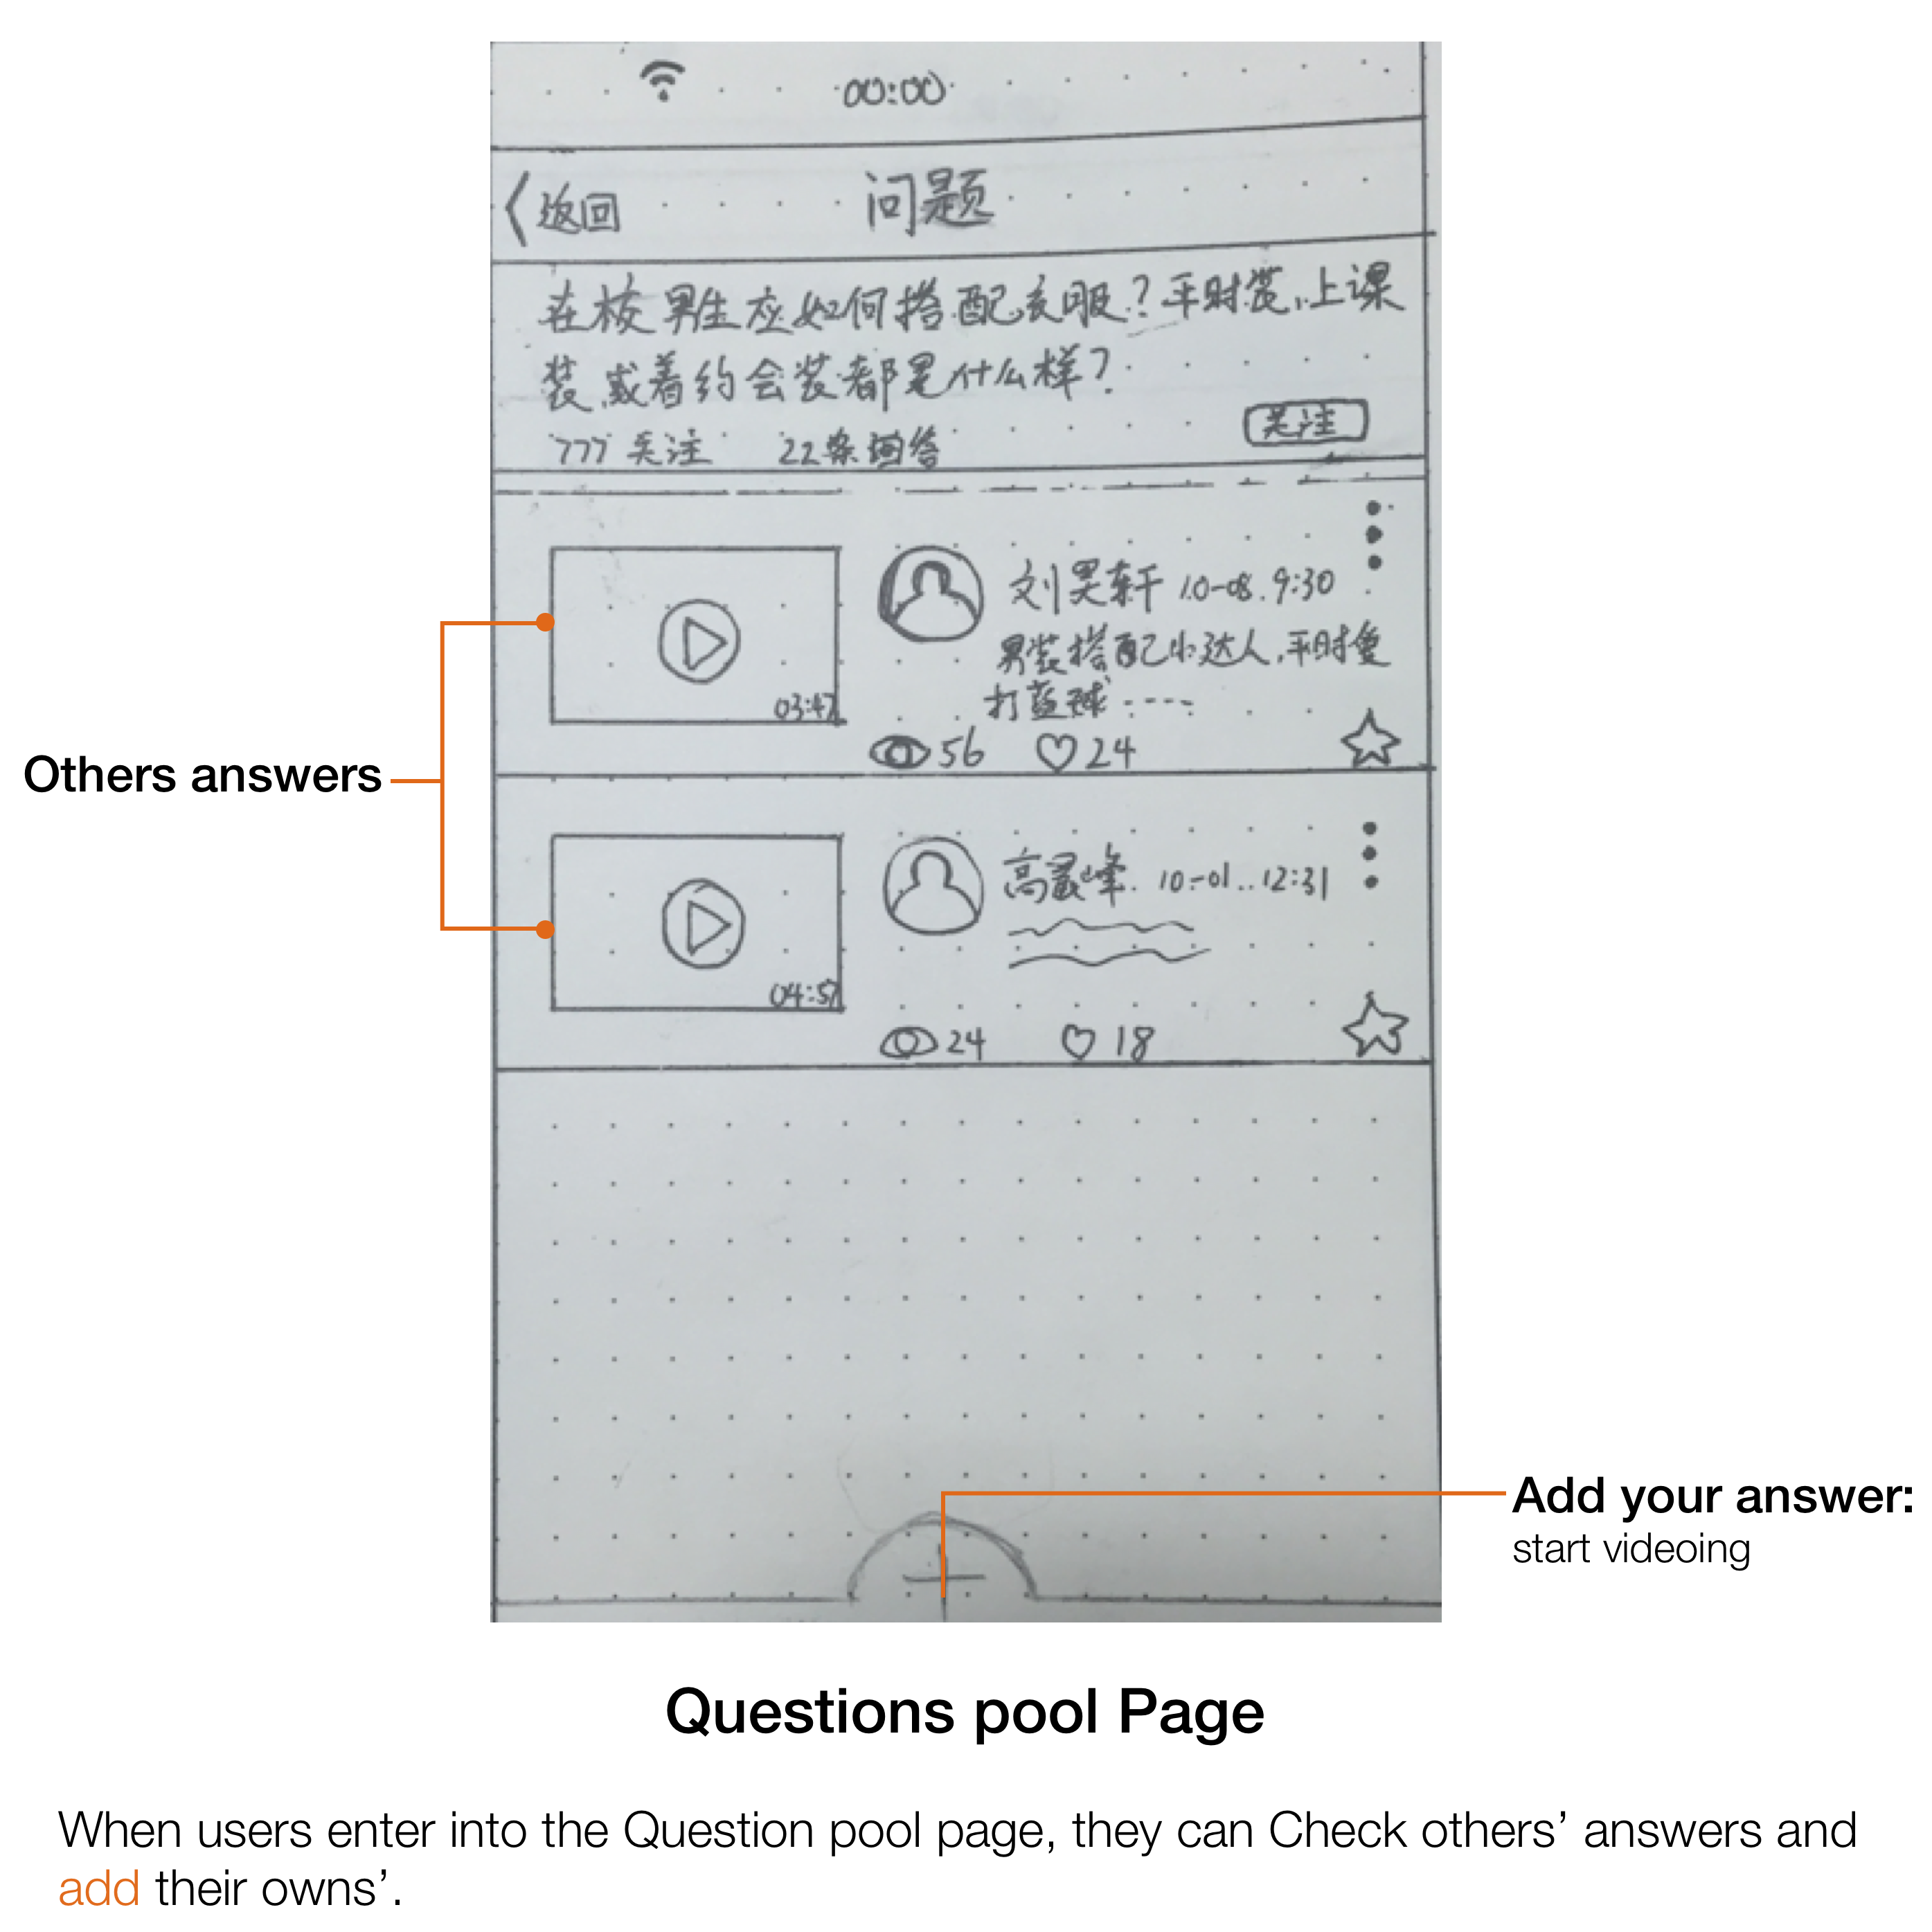 00:00
返回
问题
在校男生应如何搭配衣服？平时装、上课
装、或着约会装都是什么样？
777 关注 22条回答
关注
刘昊轩 10-08 9:30
男装搭配小达人，平时爱
打蓝球
03:47
56 24
高 峰 10-01 12:31
04:57
24 18
Others answers
Add your answer:
start videoing
Questions pool Page
When users enter into the Question pool page, they can Check others’ answers and
add their owns’.